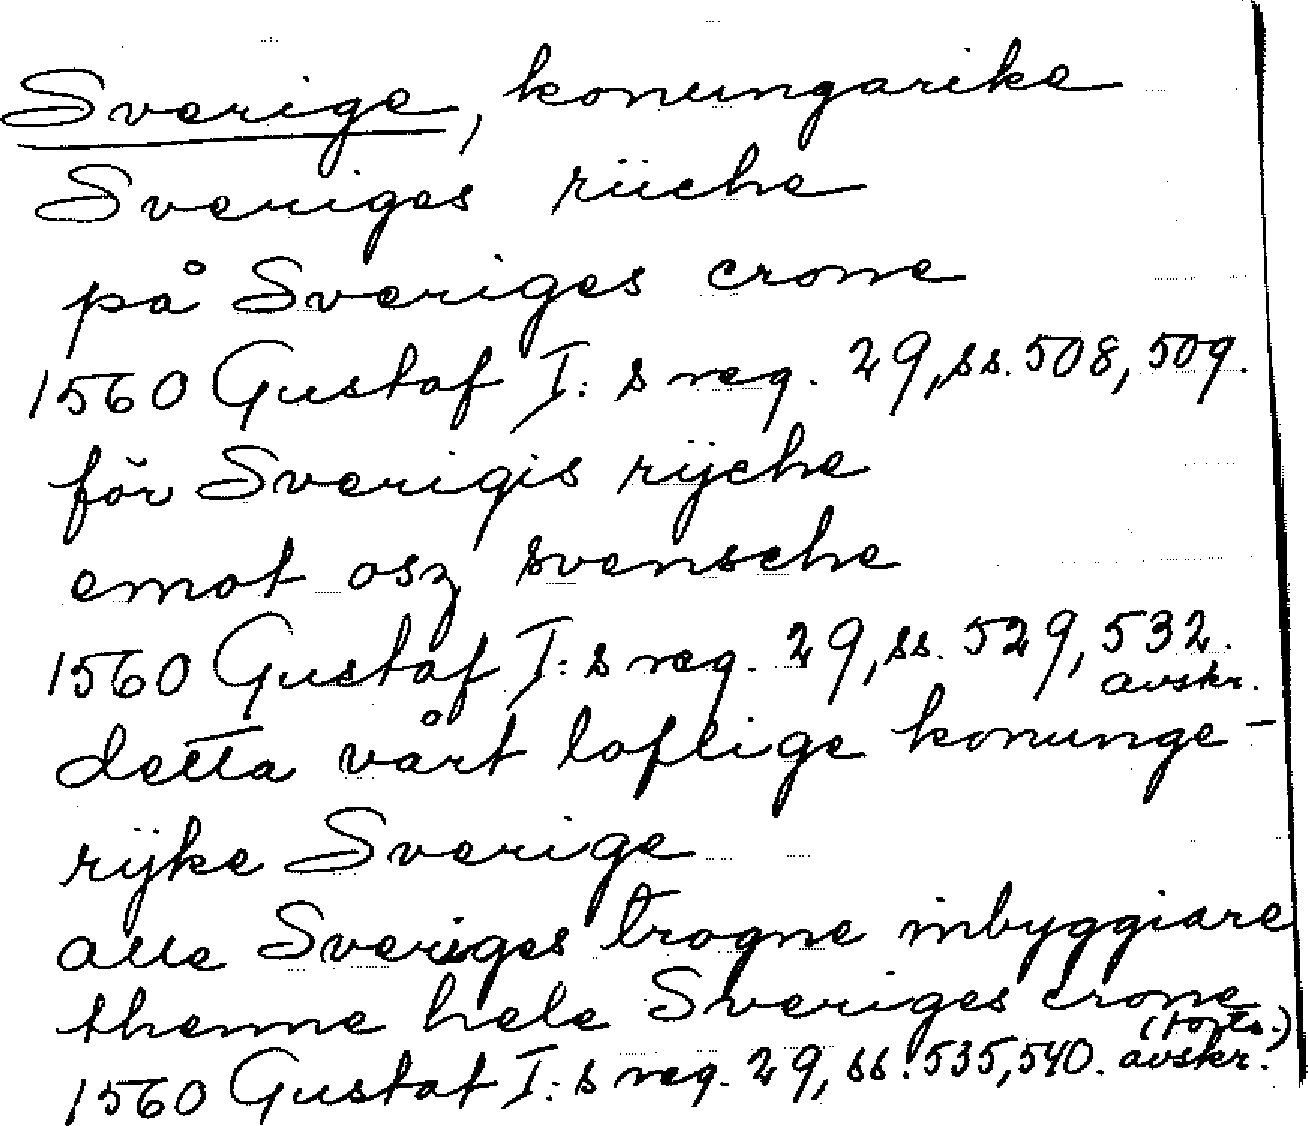 Sverige, konungarike
Sveriges riiche
på Sveriges crone
1560 Gustaf I:s reg. 29, ss. 508, 509.
för Sverigis rijche
emot osz svensche
1560 Gustaf I:s reg. 29, ss. 529, 532.
avskr.
detta vårt loflige konunge-
rijke Sverige
alle Sveriges trogne inbyggiare
thenne hele Sveriges crone
(forts.)
1560 Gustaf I:s reg. 29, ss. 535, 540. avskr.